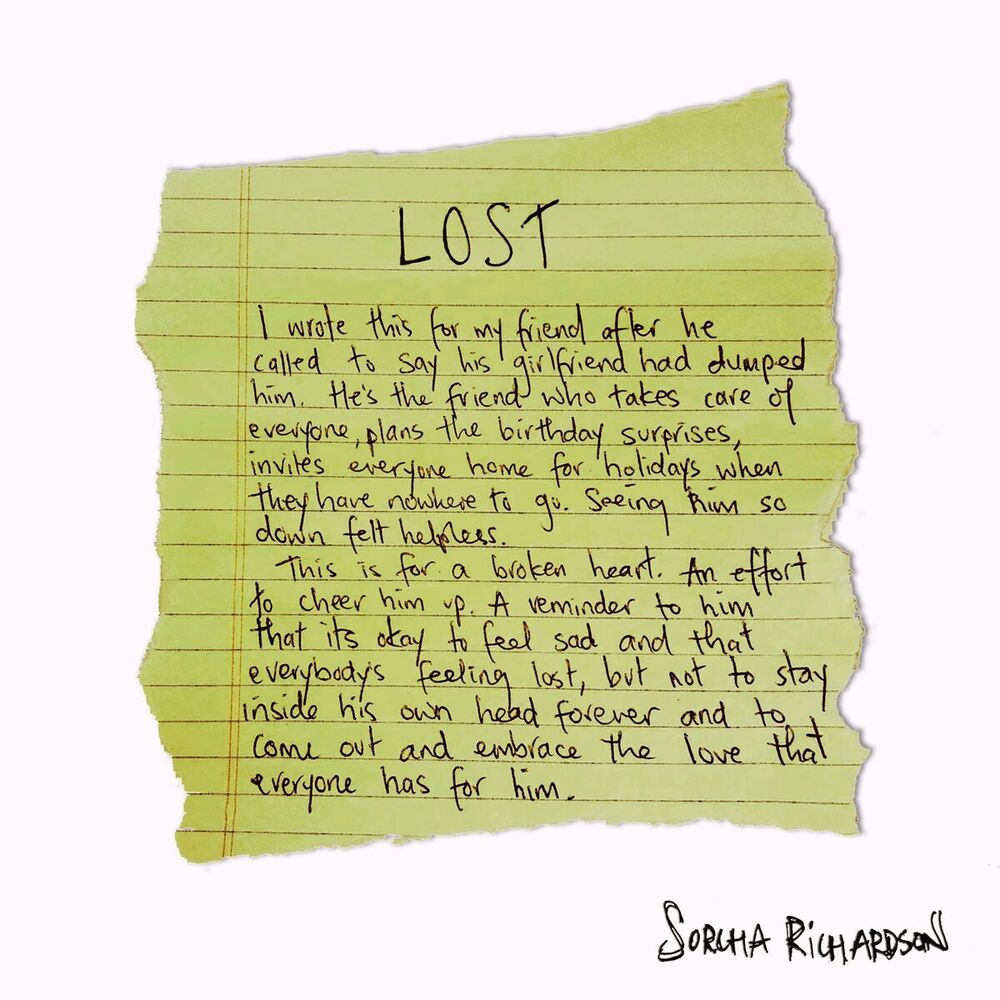 LOST
I wrote this for my friend after he
called to say his girlfriend had dumped
him. He's the friend who takes care of
everyone, plans the birthday surprises,
invites everyone home for holidays when
they have nowhere to go. Seeing him so
down felt helpless.
This is for a broken heart. An effort
to cheer him up. A reminder to him
that its okay to feel sad and that
everybody's feeling lost, but not to stay
inside his own head forever and to
come out and embrace the love that
everyone has for him.
SORCHA RICHARDSON